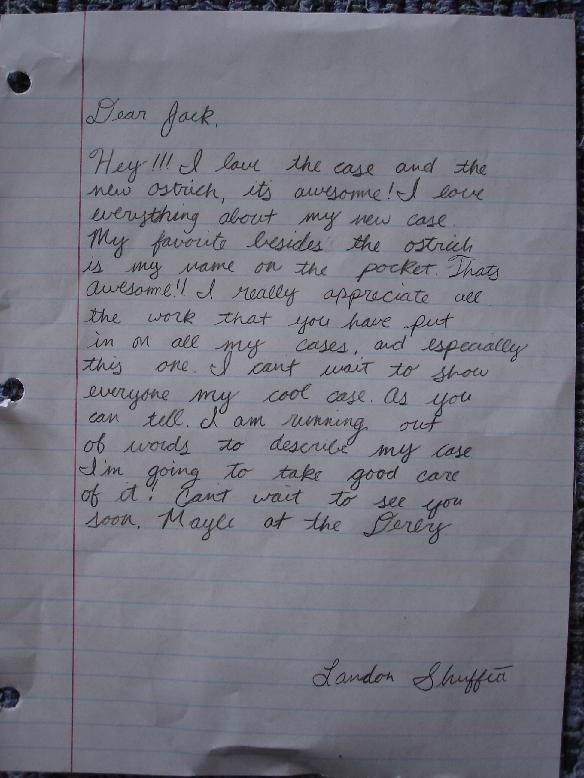 Dear Jack,
Hey!!! I love the case and the
new ostrich, its awesome! I love
everything about my new case.
My favorite besides the ostrich
is my name on the pocket. Thats
awesome!! I really appreciate all
the work that you have put
in on all my cases, and especially
this one. I cant wait to show
everyone my cool case. As you
can tell. I am running out
of words to describe my case
I'm going to take good care
of it! Can't wait to see you
soon. Maybe at the Derby
Landon Shuffitt